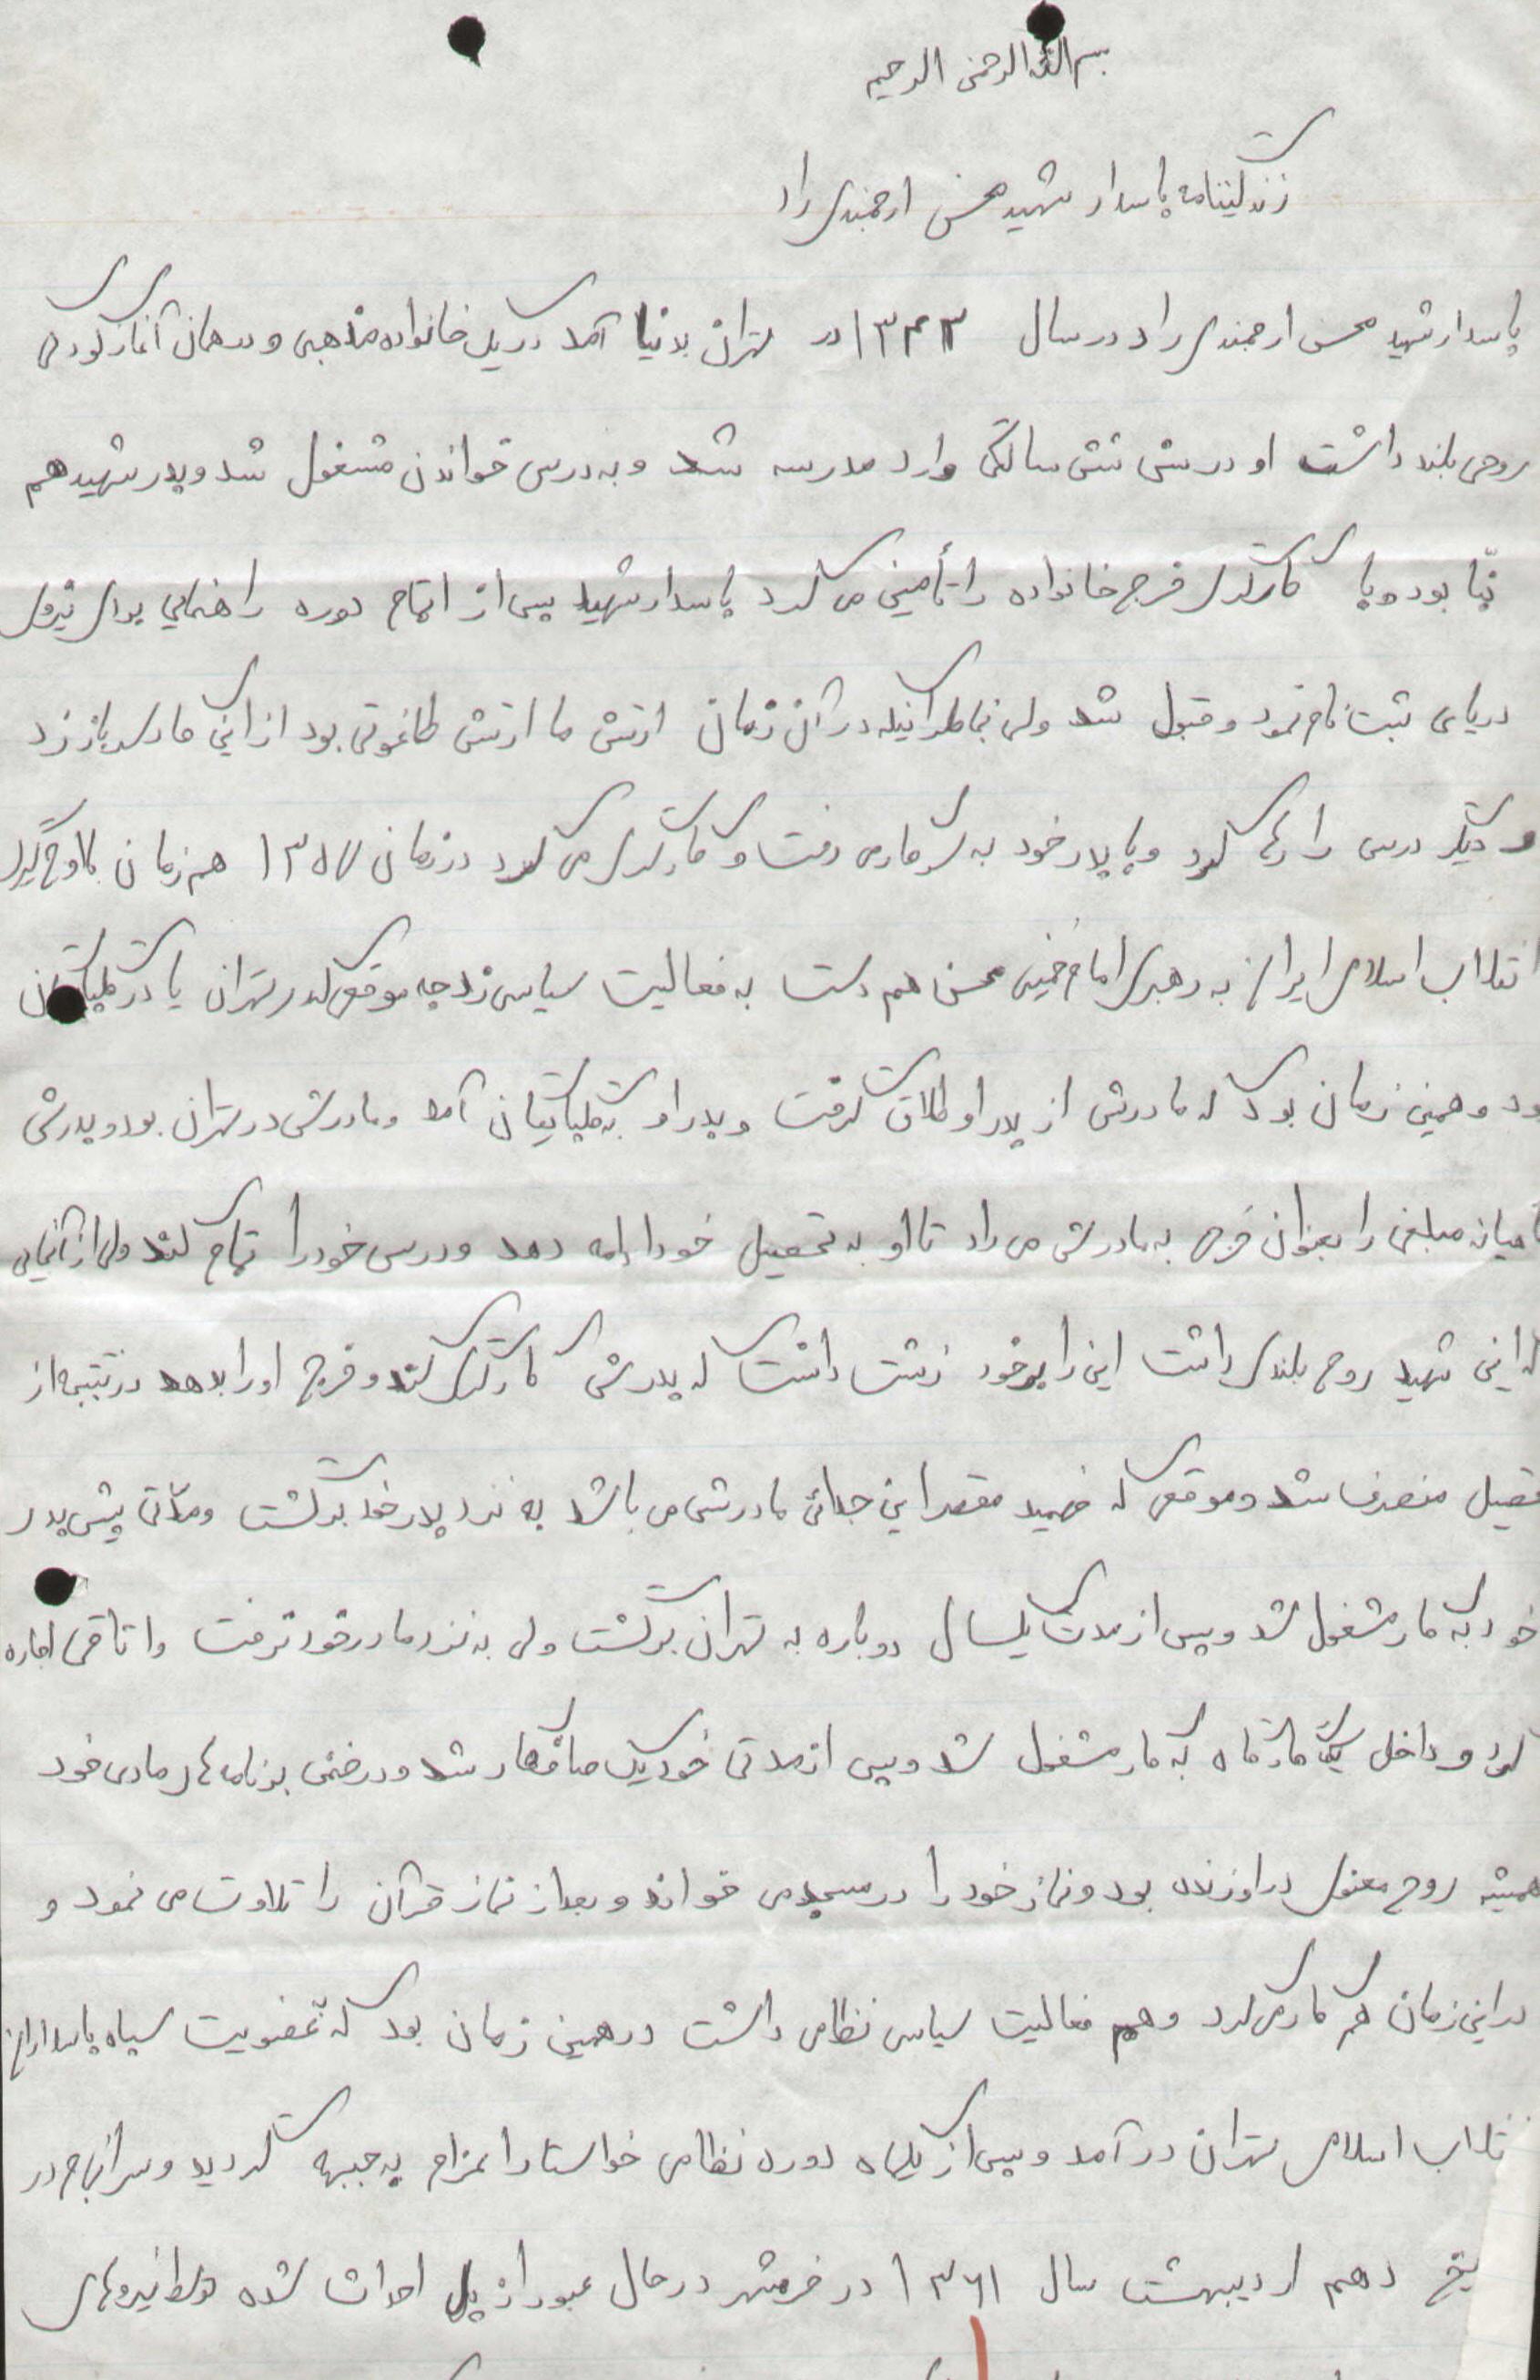 بسم الله الرحمن الرحیم
زندگینامه پاسدار شهید محسن ارجمندی راد
پاسدار شهید محسن ارجمندی راد در سال ۱۳۴۳ در تهران بدنیا آمد در یک خانواده مذهبی و در همان آغاز کودکی
روحی بلند داشت او در سن شش سالگی وارد مدرسه شد و به درس خواندن مشغول شد و پدر شهید هم
بنا بود و با کارگری خرج خانواده را تأمین می کرد پاسدار شهید پس از اتمام دوره راهنمایی برای نیروی
دریایی ثبت نام نمود و قبول شد ولی بخاطر اینکه در آن زمان ارتش ما ارتش طاغوتی بود از این کار سر باز زد
و دیگر درس را رها کرد و با پدر خود به سر کار می رفت و کارگری می کرد در زمان ۱۳۵۷ هم زمان با اوج گیری
انقلاب اسلامی ایران به رهبری امام خمینی محسن هم دست به فعالیت سیاسی زد چه موقعی که در تهران یا در گلپایگان
بود و همین زمان بود که مادرش از پدر او طلاق گرفت و پدر او به گلپایگان آمد و مادرش در تهران بود و پدرش
ماهیانه مبلغی را بعنوان خرجی به مادرش می داد تا او به تحصیل خود ادامه دهد و درس خود را تمام کند ولی از آنجایی
که این شهید روح بلندی داشت این را بر خود زشت داشت که پدرش کارگری کند و خرج او را بدهد در نتیجه از
تحصیل منصرف شد و موقعی که فهمید مقصر این جدائی مادرش می باشد به نزد پدر خود برگشت و مدتی پیش پدر
خود به کار مشغول شد و پس از مدت یکسال دوباره به تهران برگشت ولی به نزد مادر خود نرفت و اتاقی اجاره
کرد و داخل یک کارگاه به کار مشغول شد و پس از مدتی خود یک صافکار شد و در ضمن برنامه های مادی خود
همیشه روح معنوی در او زنده بود و نماز خود را در مسجد می خواند و بعد از نماز قرآن را تلاوت می نمود و
در این زمان هم کار می کرد و هم فعالیت سیاسی نظامی داشت در همین زمان بود که به عضویت سپاه پاسداران
انقلاب اسلامی تهران در آمد و پس از یکماه دوره نظامی خواستار اعزام به جبهه گردید و سرانجام در
تاریخ دهم اردیبهشت سال ۱۳۶۱ در خرمشهر در حال عبور از پل احداث شده توسط نیروهای